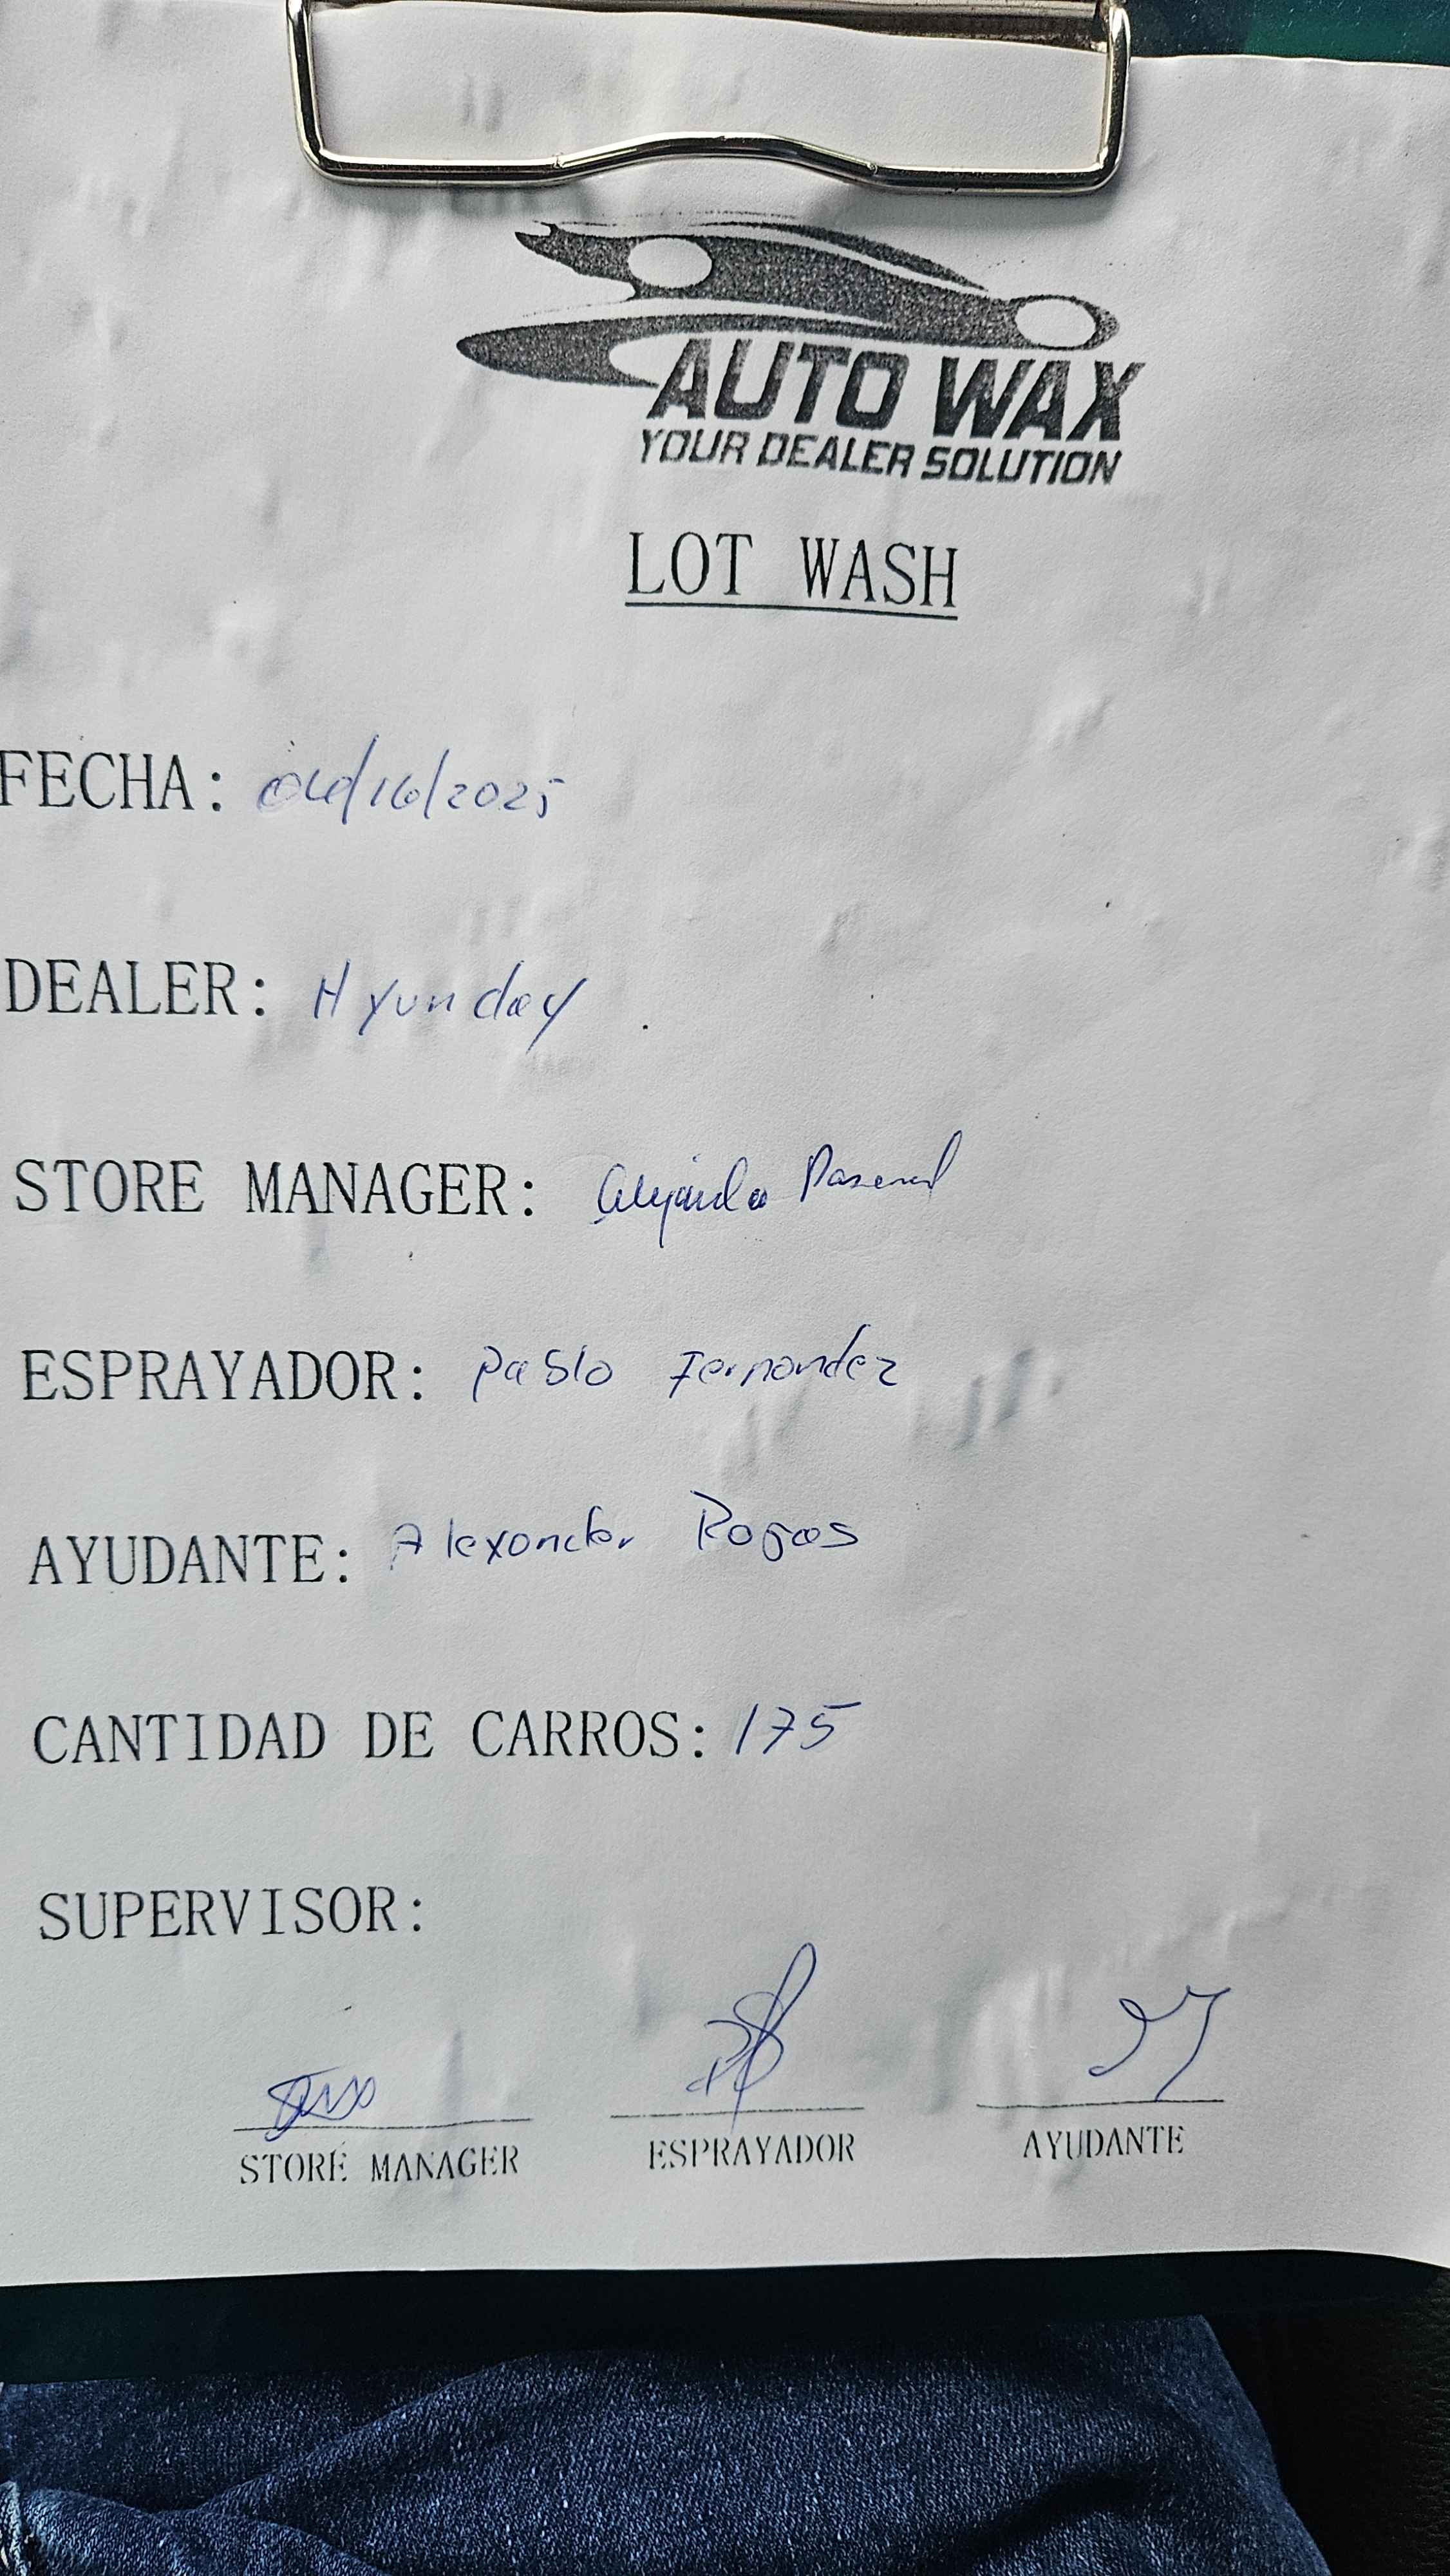 AUTO WAX
YOUR DEALER SOLUTION
LOT WASH
FECHA: 04/16/2025
DEALER: Hyunday
STORE MANAGER:
ESPRAYADOR: Pablo Fernandez
AYUDANTE: Alexander Rojas
CANTIDAD DE CARROS: 175
SUPERVISOR:
STORE MANAGER ESPRAYADOR AYUDANTE